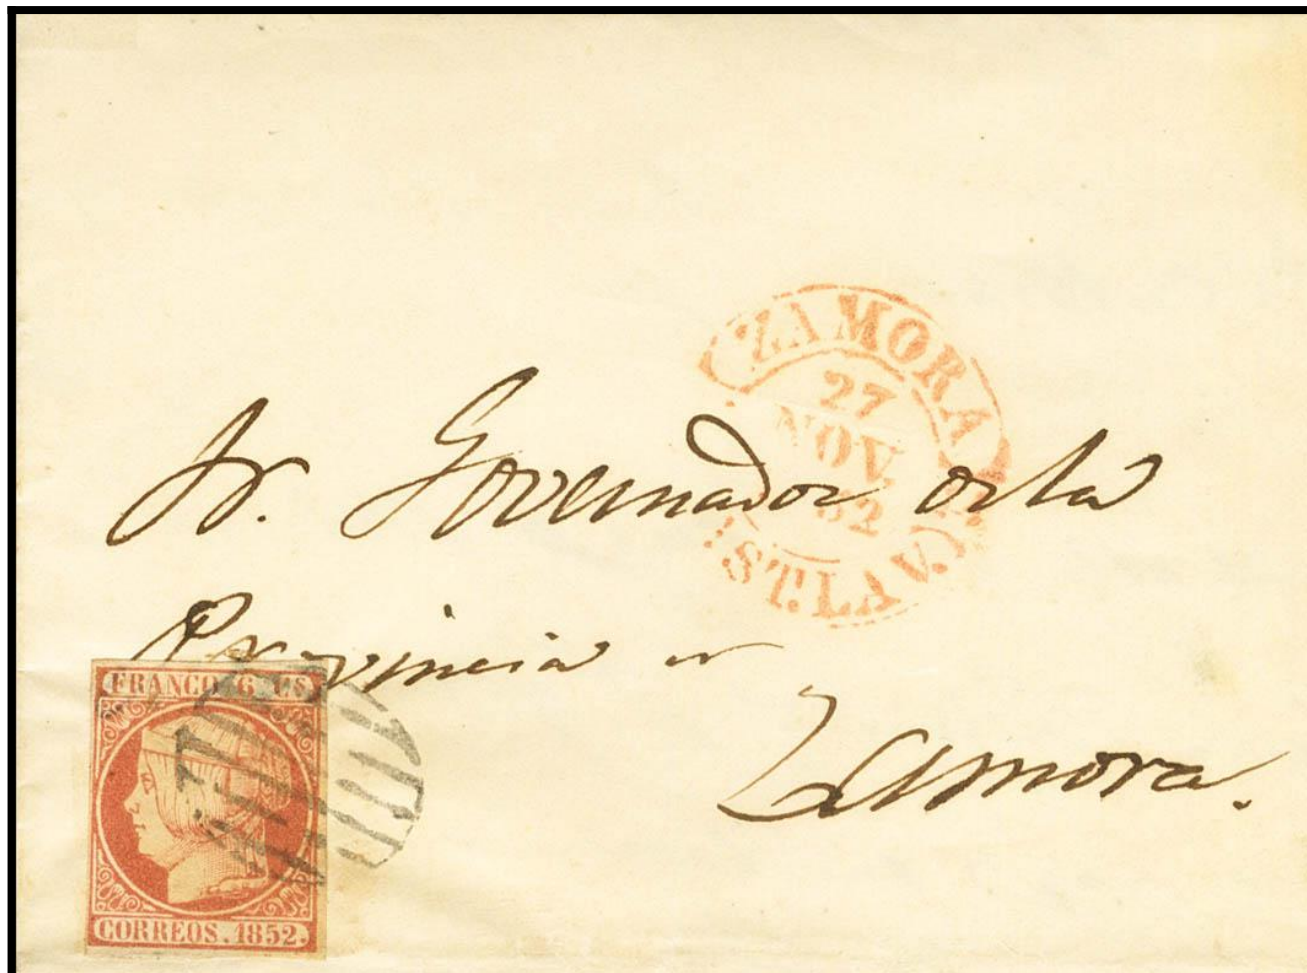 ZAMORA
27
NOV.
52
CAST. LA V.
Sr. Governador de la
Provincia de
Zamora.
FRANCO 6 CS
CORREOS. 1852.